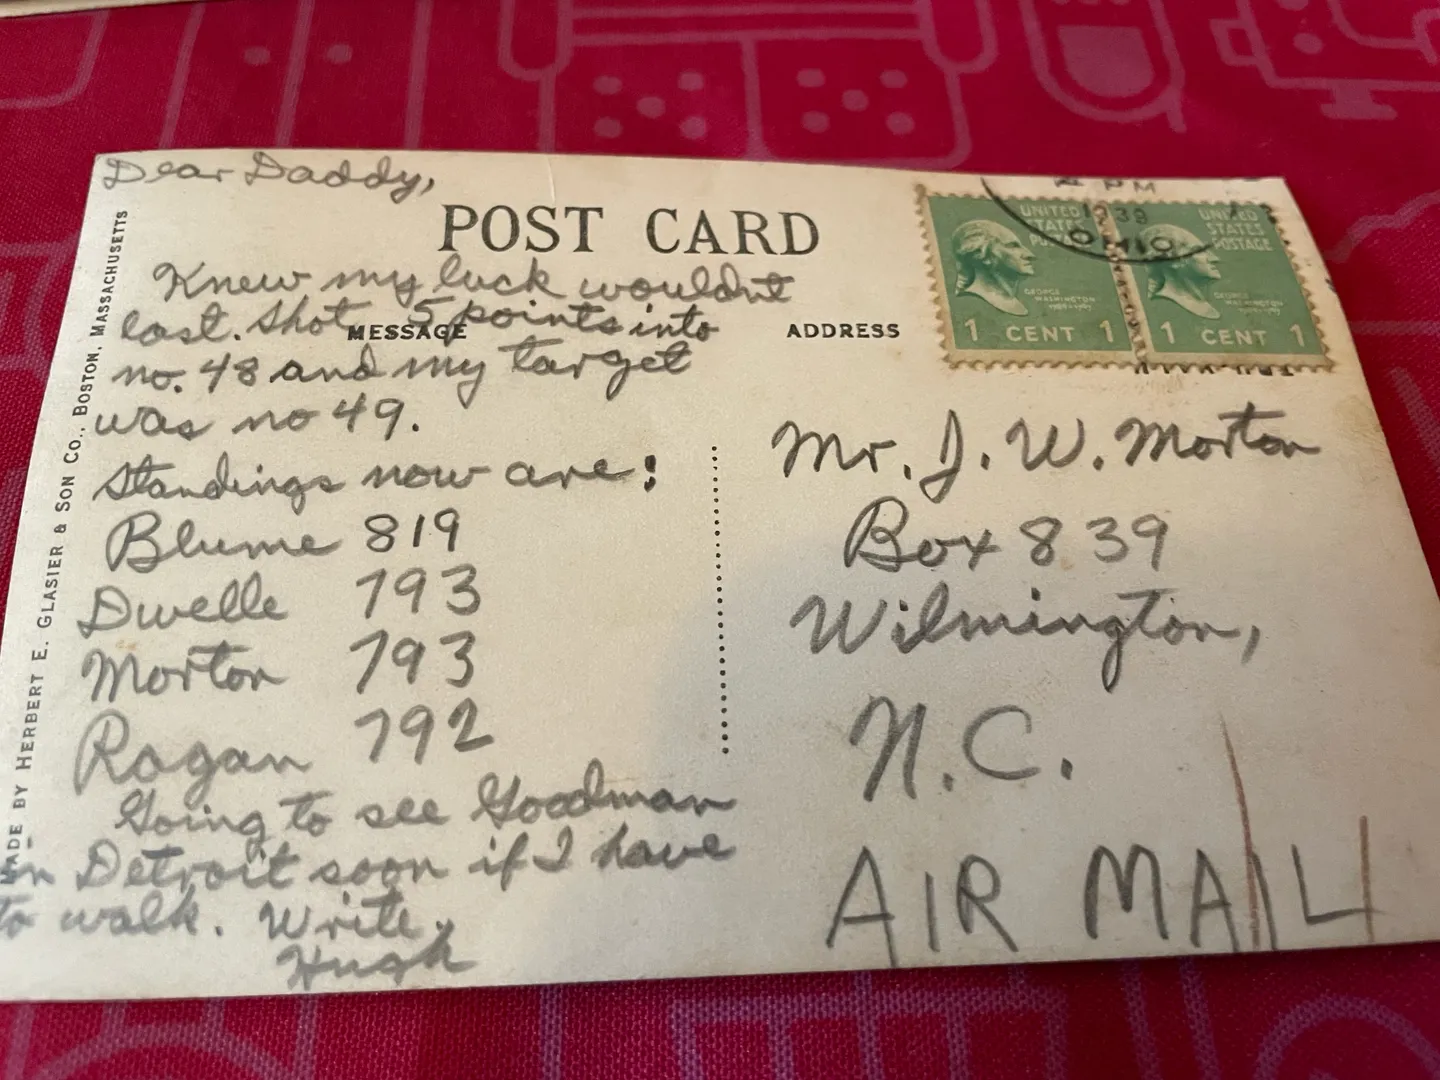 Dear Daddy,
POST CARD
Knew my luck wouldnt
last. Shot 5 points into
MESSAGE
no. 48 and my target
was no 49.
Standings now are:
Blume 819
Dwelle 793
Morton 793
Ragan 792
Going to see Goodman
in Detroit soon if I have
to walk. Write.
Hugh
MADE BY HERBERT E. GLASIER & SON CO., BOSTON, MASSACHUSETTS
ADDRESS
1939
OHIO
UNITED
STATES
POSTAGE
GEORGE
WASHINGTON
1 CENT 1
UNITED
STATES
POSTAGE
GEORGE
WASHINGTON
1 CENT 1
Mr. J. W. Morton
Box 839
Wilmington,
N.C.
AIR MAIL